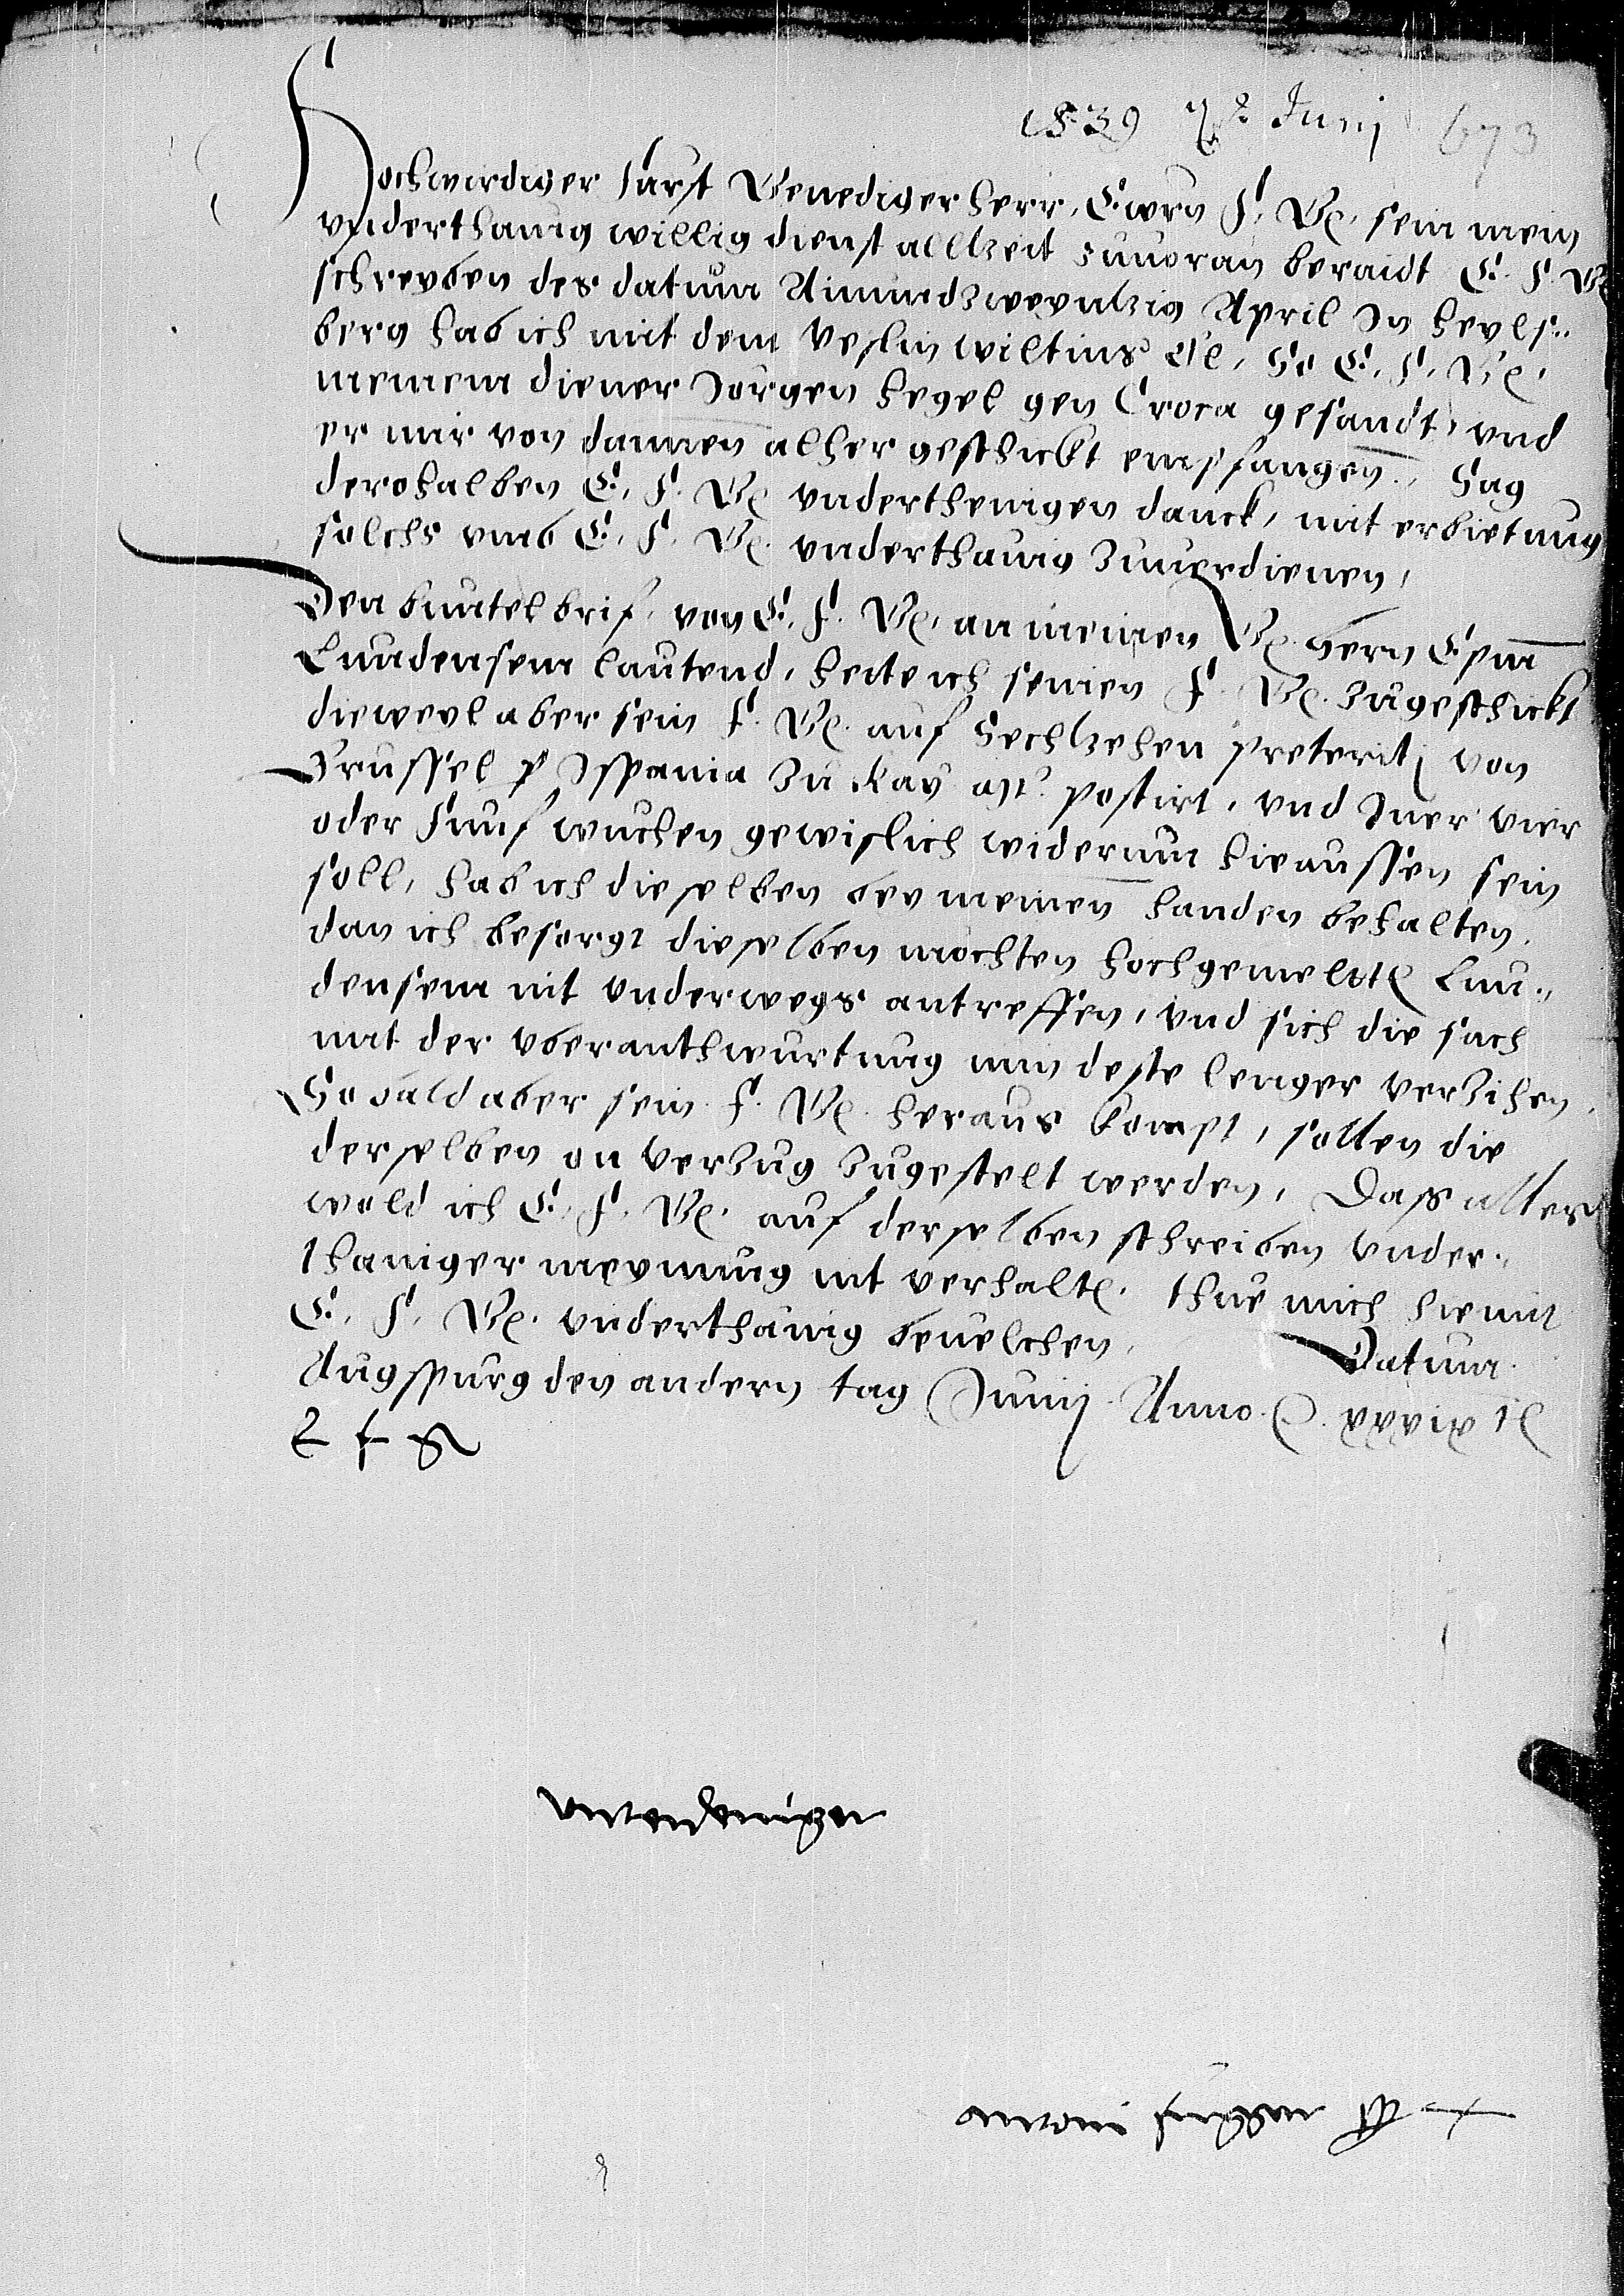 1539 2 Junij 673
Hochwirdiger Furst Genediger herr, Ewrn F. G. sein mein
vnderthanig willig dienst alltzeit zuuoran beraidt E. F. G.
schreyben des datum Ainundzweyntzig April In heyls=
berg hab ich mit dem veslin wiltins So E. F. G.
meinem diener Jorgen hegel gen Croca gesandt, vnd
er mir von dannen alher geschickt empfangen, Sag
derohalben E. F. G. vnderthenigen danck, mit erbietung
solchs vmb E. F. G. vnderthanig zuuerdienen,
Den bundtel brif, von E. F. G. an meinen G. hern Epm
Lundensem lautend, hete ich seinen F. G. zugeschickt
dieweyl aber sein F. G. auf Sechtzehen preteriti von
Brussel p Ispania zu kay mt. postirt, vnd Inner vier
oder Funf wuchen gewislich widerumb hieaussen sein
soll, hab ich dieselben bey meinen handen behalten,
dan ich besorgt dieselben mochten hochgemelten Lun=
densem nit vnderwegs antreffen, vnd sich die sach
mit der vberanthwurtung nun deste lenger verzihen,
So bald aber sein F. G. heraus kompt, sollen die
derselben on verzug zugestelt werden, Das alles
wold ich E. F. G. auf derselben schreiben vnder=
thaniger meynung nit verhalten, thue mich hiemit
E. F. G. vnderthanig beuelchen, Datum
Augspurg den andern tag Junij Anno &c. xxxix ten
E F G
vnterdeniger
antoni fugger